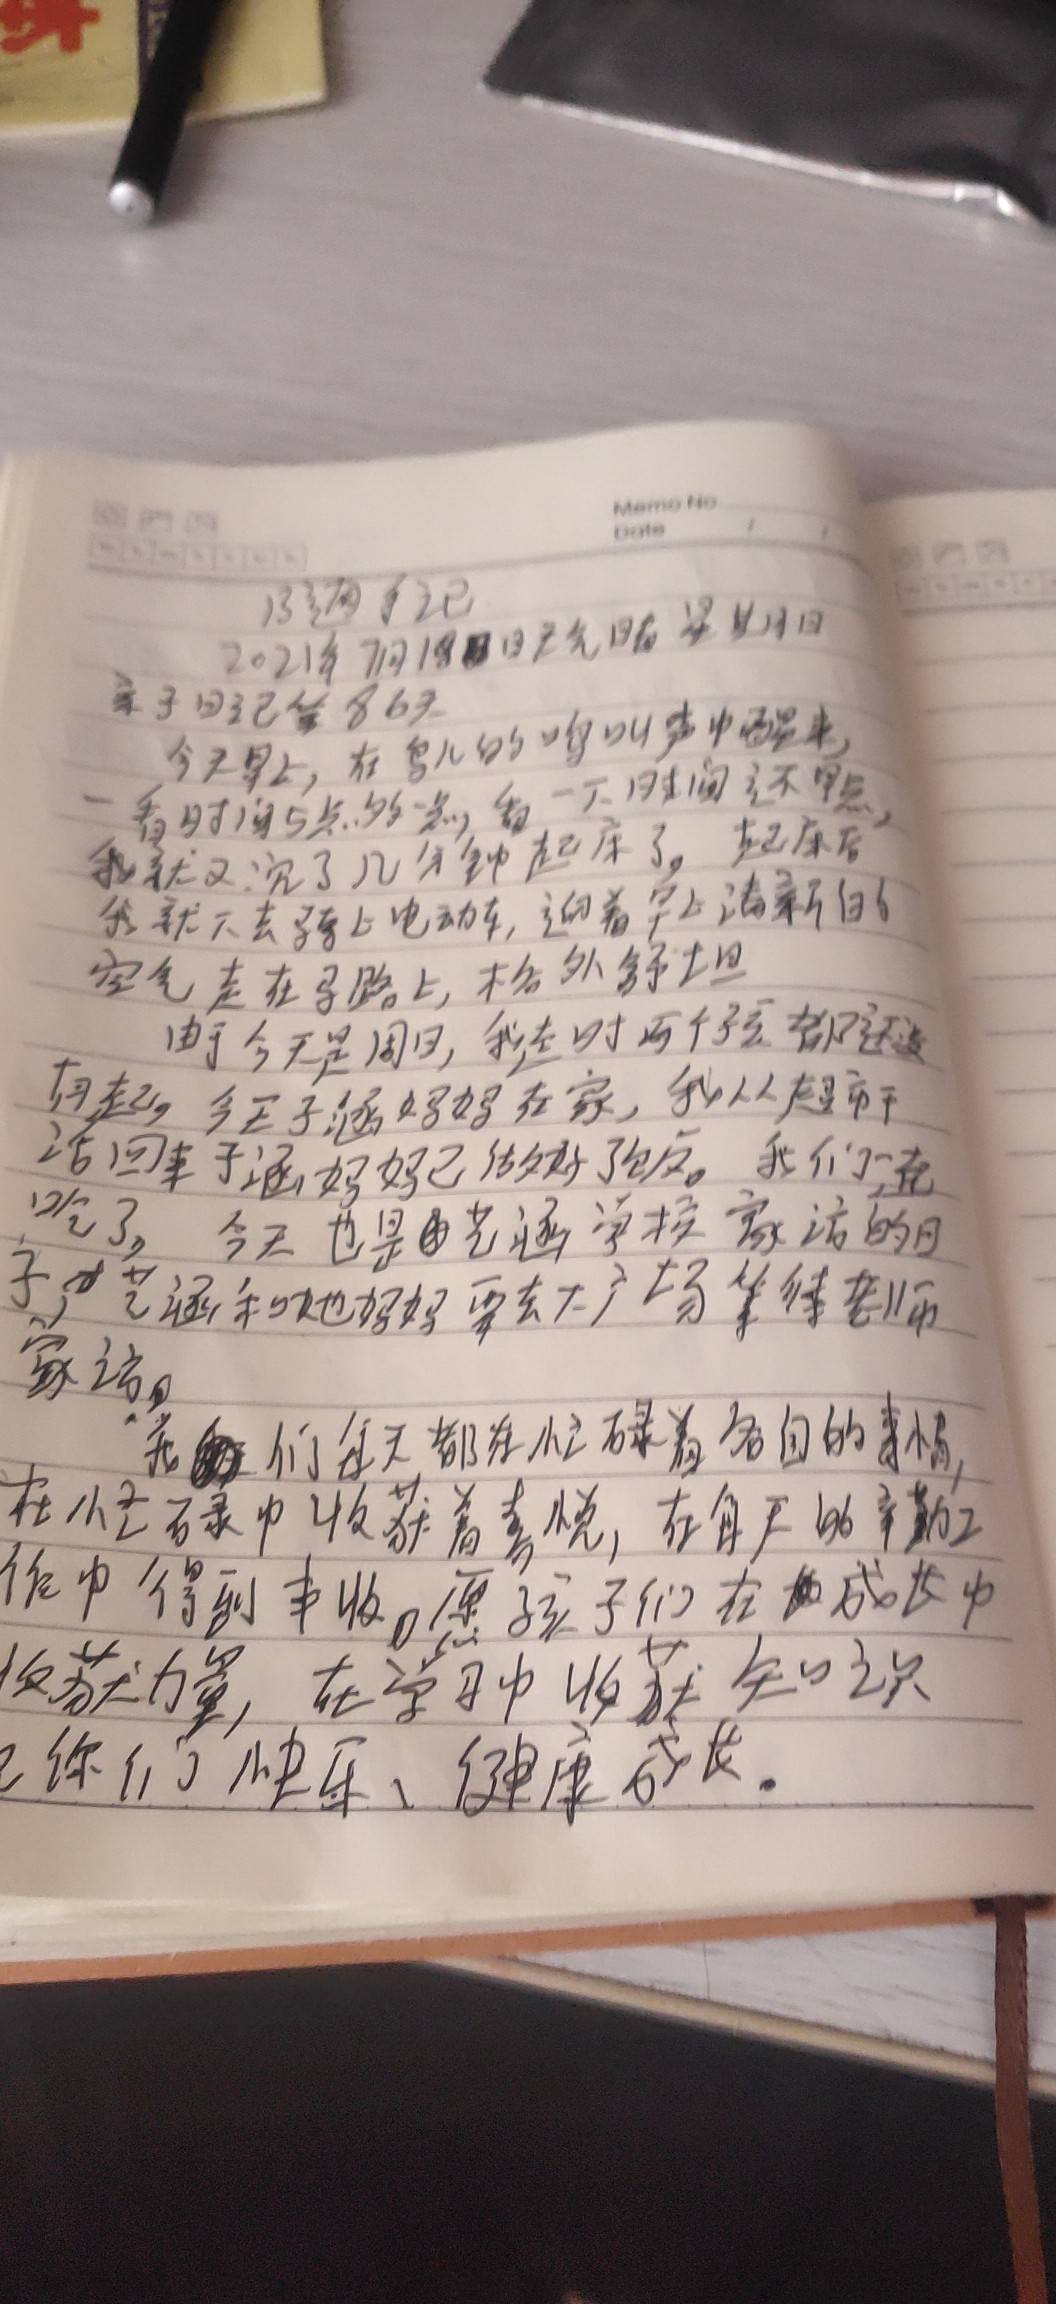 Memo No
Date / /
随手记
2021年7月18日天气晴 星期日
亲子日记第86天
今天早上，在鸟儿的鸣叫声中醒来，
一看时间5点多一点，看一下时间还不早点，
我就又沉了几分钟起床了。起床后
我就下去骑上电动车，迎着早上清新的
空气走在马路上，格外舒坦
由于今天是周日，我走时两个孩都还没
有起。今天子涵妈妈在家，我从超市干
活回来子涵妈妈已做好了饭。我们一起
吃了。今天也是艺涵学校家访的日
子，艺涵和她妈妈要去大广场等待老师
家访。
我们每天都在忙碌着各自的事情，
在忙碌中收获着喜悦，在每天的辛勤工
作中得到丰收。愿孩子们在成长中
收获力量，在学习中收获知识
你们快乐、健康成长。